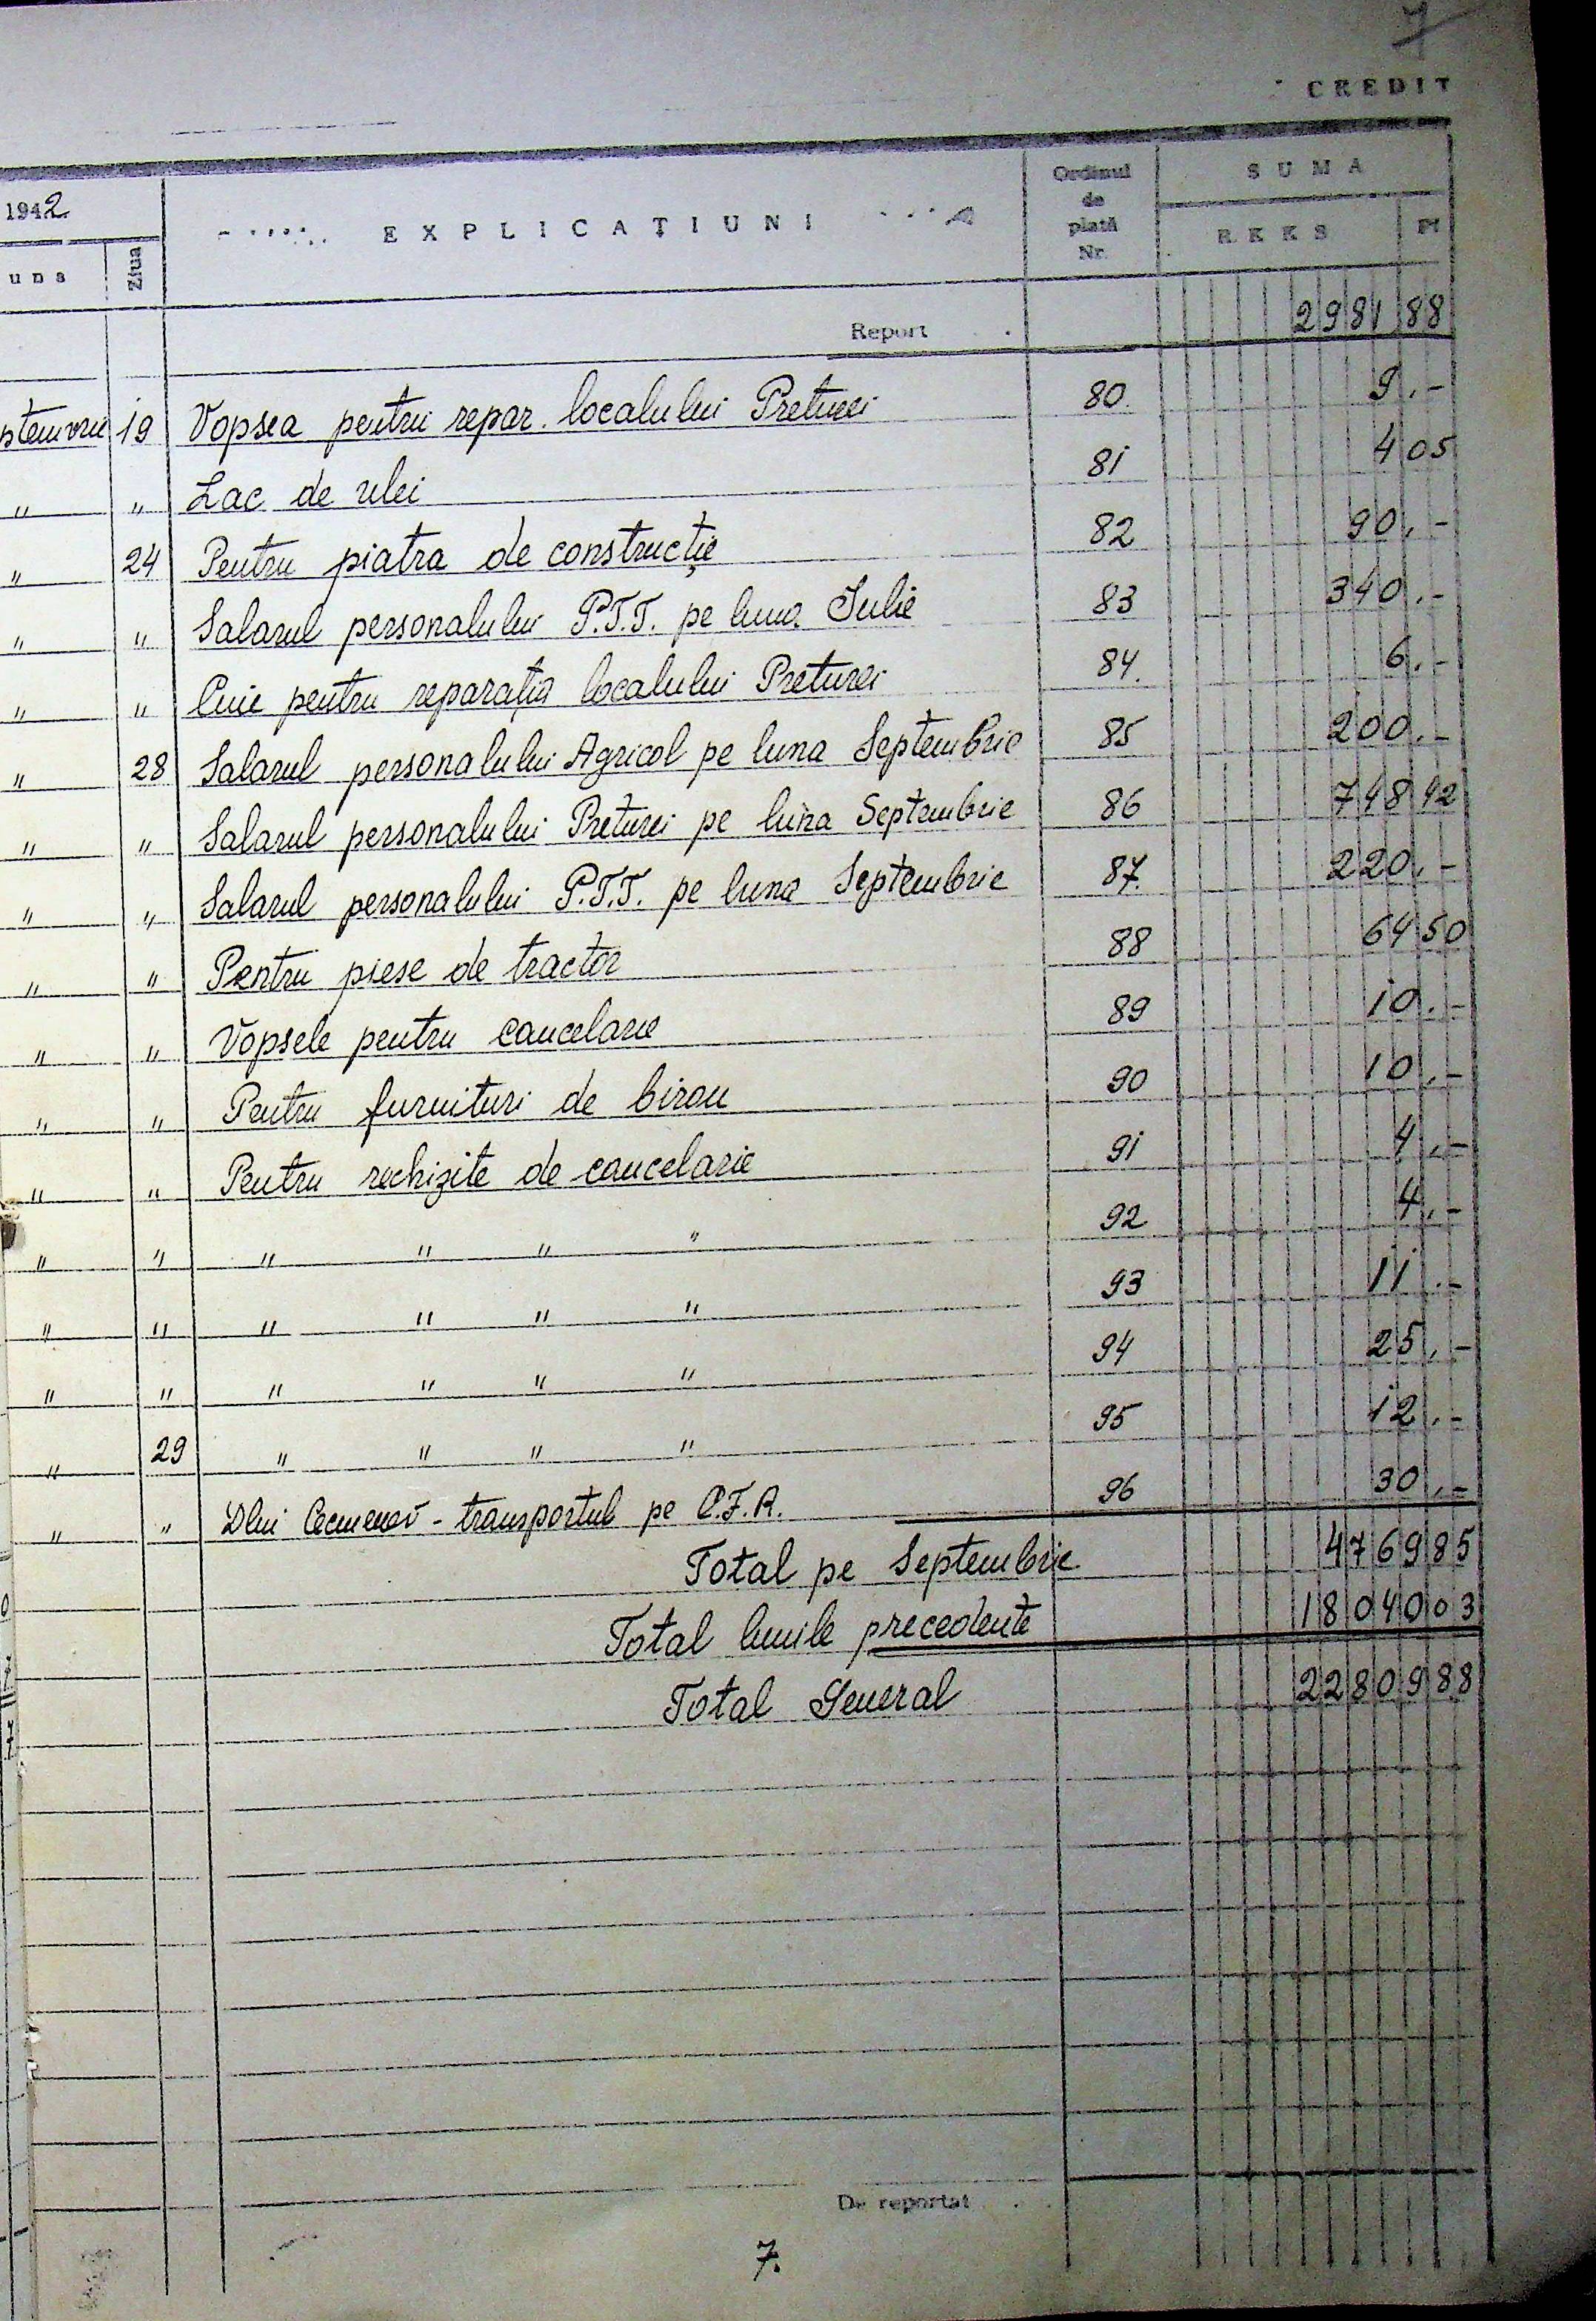 7
CREDIT
1942
EXPLICAŢIUNI
Ordinul de plată Nr.
SUMA
una
Ziua
RKKS
Pf
Report 2981 88
ptemvrie 19 Vopsea pentru repar. localului Preturei 80. 9.-
" " Lac de ulei 81 4 05
" 24 Pentru piatra de construcţie 82 90.-
" " Salarul personalului P.T.T. pe luna Iulie 83 340.-
" " Cuie pentru reparaţia localului Preturei 84. 6.-
" 28 Salarul personalului Agricol pe luna Septembrie 85 200.-
" " Salarul personalului Preturei pe luna Septembrie 86 748 42
" " Salarul personalului P.T.T. pe luna Septembrie 87. 220.-
" " Pentru piese de tractor 88 64 50
" " Vopsele pentru cancelarie 89 10.-
" " Pentru furnituri de birou 90 10.-
" " Pentru rechizite de cancelarie 91 4.-
" " " " " " 92 4.-
" " " " " " 93 11.-
" " " " " " 94 25.-
" 29 " " " " 95 12.-
" " Dlui - transportul pe C.F.R. 96 30.-
Total pe Septembrie 4769 85
Total lunile precedente 18040 03
Total General 22809 88
De reportat
7.